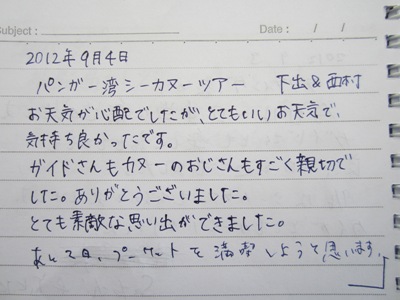 Subject :
Date : / /
2012年9月4日
パンガー湾シーカヌーツアー 下出&西村
お天気が心配でしたが、とてもいいお天気で、
気持ち良かったです。
ガイドさんもカヌーのおじさんもすごく親切で
した。ありがとうございました。
とても素敵な思い出ができました。
あと2日、プーケットを満喫しようと思います。